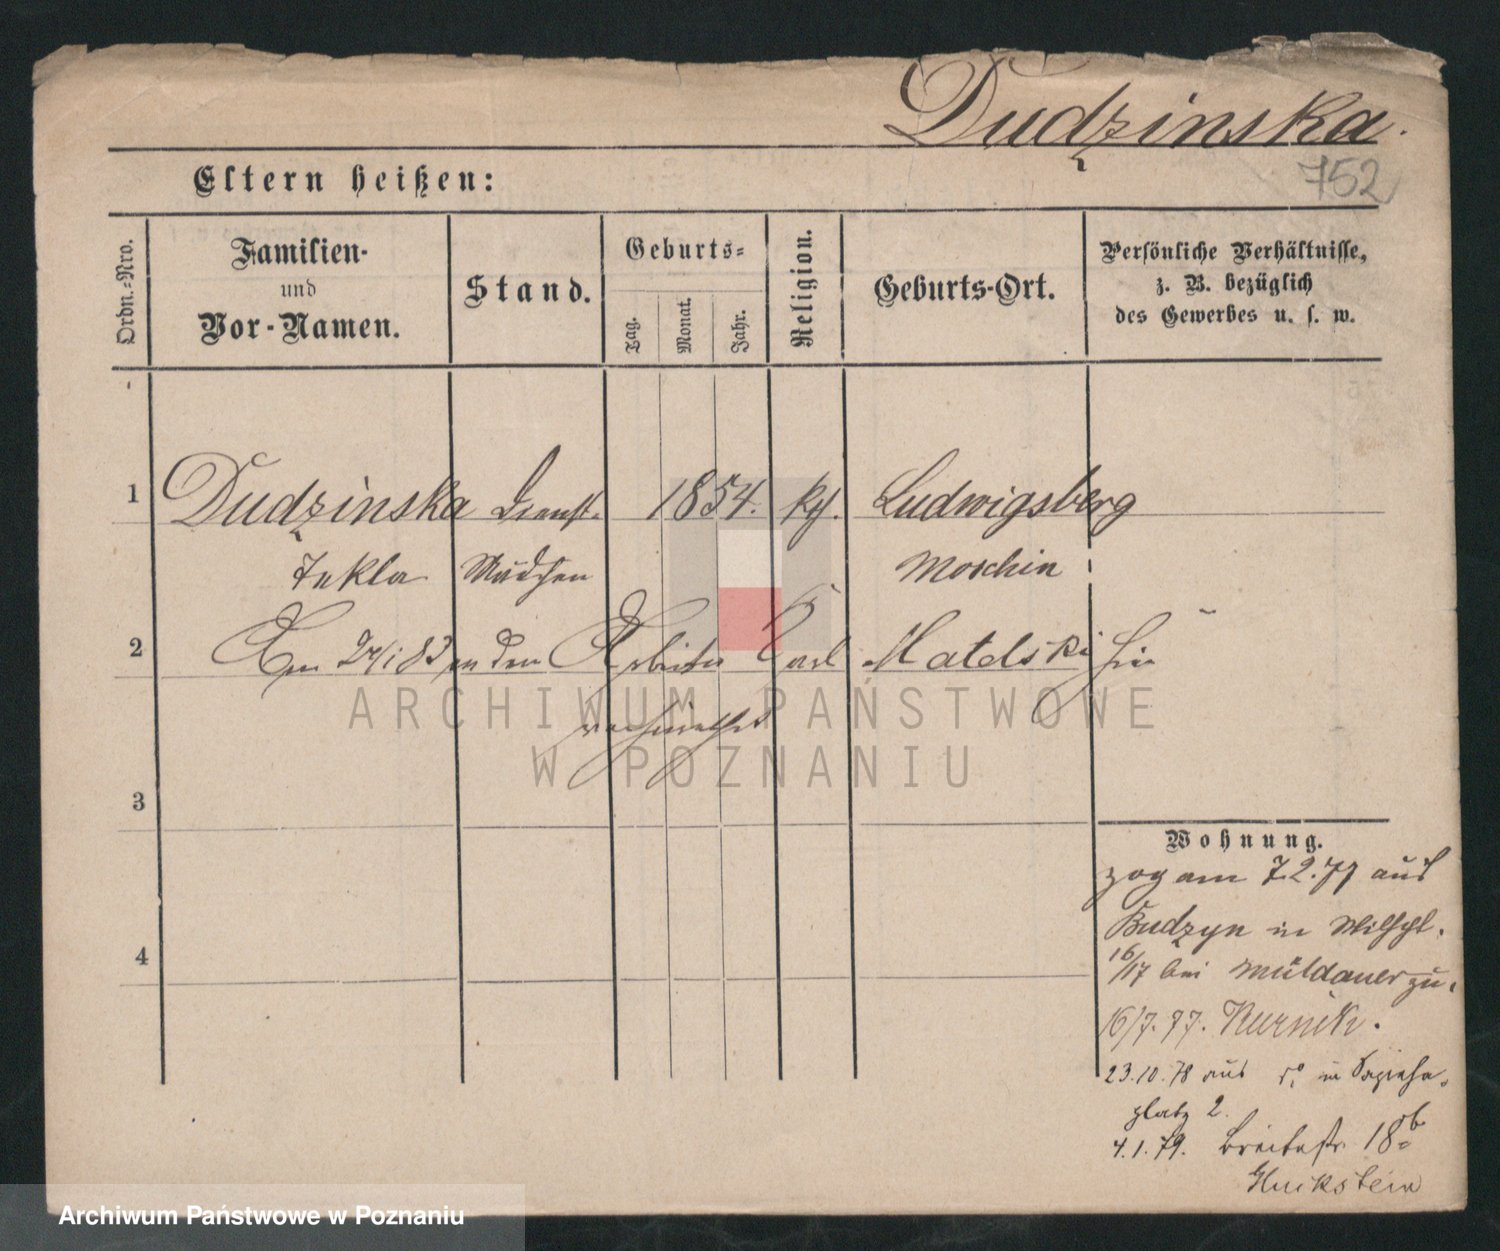 Dudzinska.
752
Eltern heißen:
Ordn.-Nro.
Familien-
und
Vor-Namen.
Stand.
Geburts-
Tag.
Monat.
Jahr.
Religion.
Geburts-Ort.
Persönliche Verhältnisse,
z. B. bezüglich
des Gewerbes u. s. w.
1 Dudzinska Dienst- 1854. kth. Ludwigsberg
Tekla Mädchen Moschin
2 Am 24/1 83 an den Arbeiter Carl Matelski hier
verheirathet
ARCHIWUM PAŃSTWOWE
W POZNANIU
3
Wohnung.
zog am 7.2.77 aus
Budzyn in Wilhpl.
4
16/17 bei Müldauer zu.
16/7.77. Kurnik.
23.10.78 aus in Sapieha-
platz 2.
4.1.79. Breitestr. 18b
Gluckstein
Archiwum Państwowe w Poznaniu